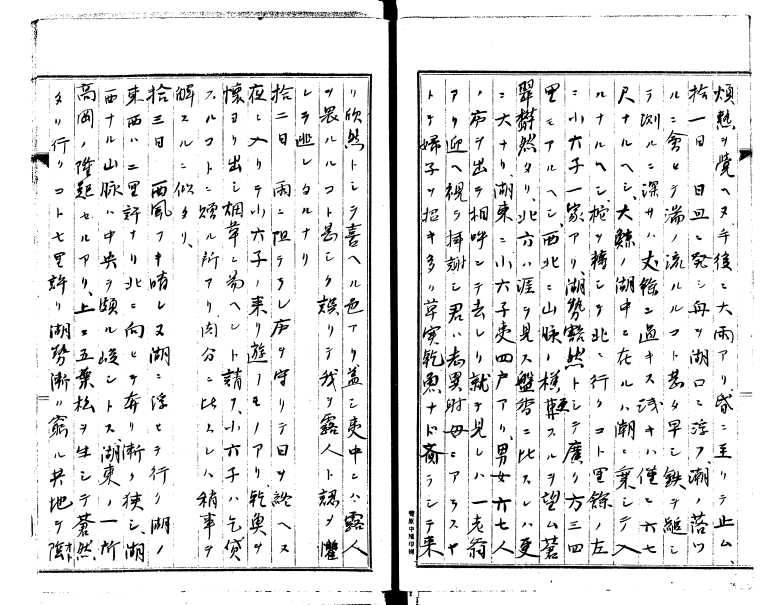 煩熱ヲ覚ヘヌ午後ニ大雨アリ昏ニ至リテ止ム
拾一日 日亘ニ発シ舟ヲ湖口ニ浮フ潮ノ落ツ
ルニ會セテ湍ノ流ルルコト甚タ早シ鉄ヲ縋シ
テ測ルニ深サハ丈餘ニ過キス浅キハ僅ニ六七
尺ナルヘシ、大鯨ノ湖中ニ在ルハ潮ニ乗シテ入
ルナルヘシ舵ヲ轉シテ北ニ行クコト里餘ノ左
ニ小六子一家アリ、湖勢豁然トシテ廣リ方三四
里モアルヘシ、西北ニ山脉ノ横タルヲ望ム蒼
翠欝然タリ、北方ハ涯ヲ見ス盤沓ニ比スレハ更
ニ大ナリ、湖東ニ小六子吏四戸アリ、男女六七人
ノ廬ヲ出テ相呼シテ去レリ就テ見レハ一老翁
アリ迎ヘ視テ揖謝シ君ハ志異財母ニアラスヤ
トテ婦子ヲ招キ多ク草実乾魚ナド齎ラシテ来
リ欣然トシテ喜ヘル色アリ盖シ吏中ニハ露人
ヲ畏ルルコト甚シク誤リテ我ヲ露人ト認メ懼
レテ逃レタルナリ
拾二日 雨ニ阻テラレ廬ヲ守リテ日ヲ終ヘス
夜ニ入リテ小六子ノ来リ遊フモノアリ、乾魚ヲ
懐ヨリ出シ烟草ニ易ヘント請フ、小六子ハ乞貸
スルコトニ嬾ル所アリ肉谷ニ比スレハ稍事ヲ
解スルニ似タリ、
拾三日 西風フキ晴レ又湖ニ浮ヒテ行ク湖ノ
東西ハ二里許ナリ北ニ向ヒテ奔リ漸ク狭シ、湖
西ナル山脉ハ中央ヲ頗ル峻シトス、湖東ノ一所
高岡ノ隆起セルアリ、上ニ五葉松ヲ生シテ蒼然
タリ行クコト七里許リ湖勢漸ク窮ル共地ヲ